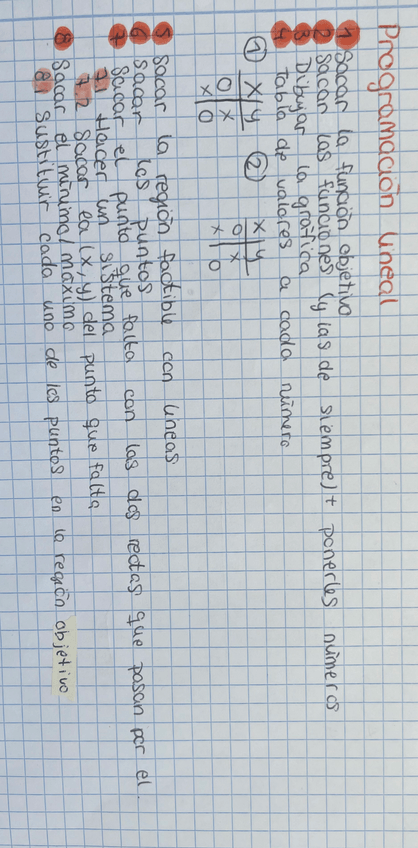 Programación lineal
1 Sacar la función objetivo
2 Sacar las funciones (y las de siempre) + ponerles números
3 Dibujar la gráfica
4 Tabla de valores a cada número
① x y ② x y
0 x 0 x
x 0 x 0
5 Sacar la región factible con líneas
6 Sacar los puntos
7 Sacar el punto que falta con las dos rectas que pasan por el.
7.1 Hacer un sistema
7.2 Sacar ea (x,y) del punto que falta
8 Sacar el mínimo/máximo
8.1 Sustituir cada uno de los puntos en la región objetivo